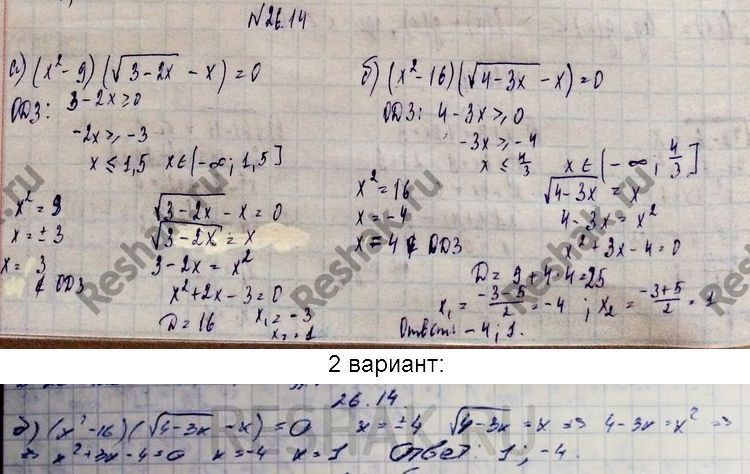 N26.14
а) (x² - 9)(√3-2x - x) = 0
ОДЗ: 3-2x ≥ 0
-2x ≥ -3
x ≤ 1,5 x ∈ (-∞; 1,5]
x² = 9
x = ±3
x = 3 ∉ ОДЗ
√3-2x - x = 0
√3-2x = x
3-2x = x²
x² + 2x - 3 = 0
D = 16 x₁ = -3
x₂ = 1
б) (x² - 16)(√4-3x - x) = 0
ОДЗ: 4-3x ≥ 0
-3x ≥ -4
x ≤ 4/3 x ∈ (-∞; 4/3]
x² = 16
x = -4
x = 4 ∉ ОДЗ
√4-3x = x
4-3x = x²
x² + 3x - 4 = 0
D = 9 + 4·4 = 25
x₁ = -3-5/2 = -4 ; x₂ = -3+5/2 = 1
Ответ: -4; 1.
2 вариант:
26.14
б) (x²-16)(√4-3x - x) = 0 x = ±4 √4-3x = x => 4-3x = x² =>
=> x²+3x-4=0 x=-4 x=1 Ответ: 1; -4.
Reshak.ru
RESHAK.RU